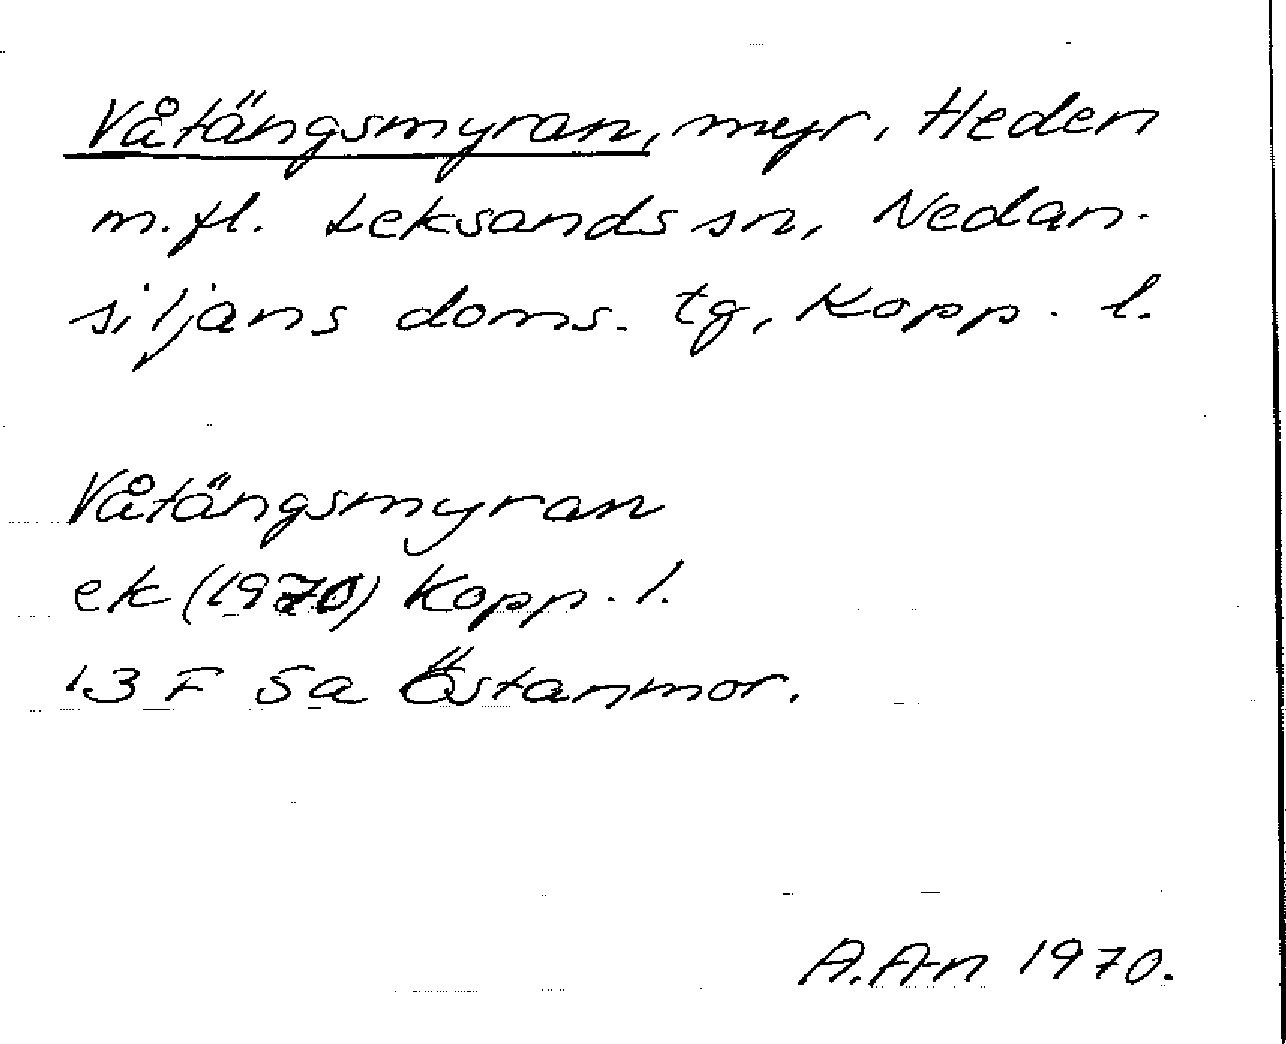 Våtängsmyran, myr, Heden
m.fl. Leksands sn, Nedan-
siljans doms. tg, Kopp. l.
Våtängsmyran
ek (1970) Kopp. l.
13 F 5a Östanmor.
A.A-n 1970.